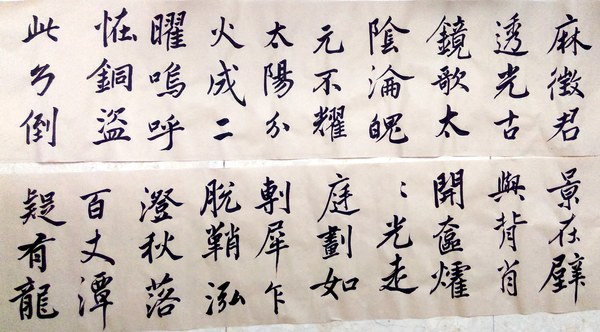 麻徵君
透光古
鏡歌太
陰淪魄
元不耀
太陽分
火成二
曜嗚呼
恠銅盜
此丂倒
景在壁
與背肖
開奩燿
〻光走
庭劃如
剸犀乍
脫鞘泓
澄秋落
百丈潭
疑有龍